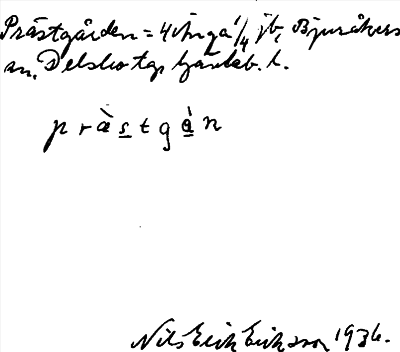 Prästgården = 4 Ånga 1/4 jb, Bjuråkers
sn, Delsbo tg, Gävleb. l.
p r ä s t g å n
Nils Erik Eriksson 1936.